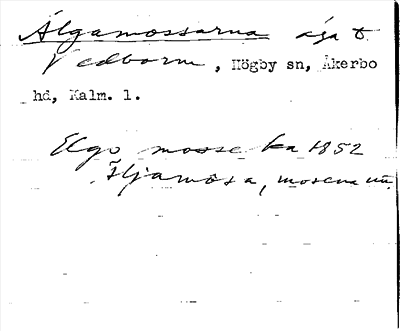 Älgamossarna äga t.
Vedborm, Högby sn, Åkerbo
hd, Kalm. l.
Elgo mosse ka 1852
mosena